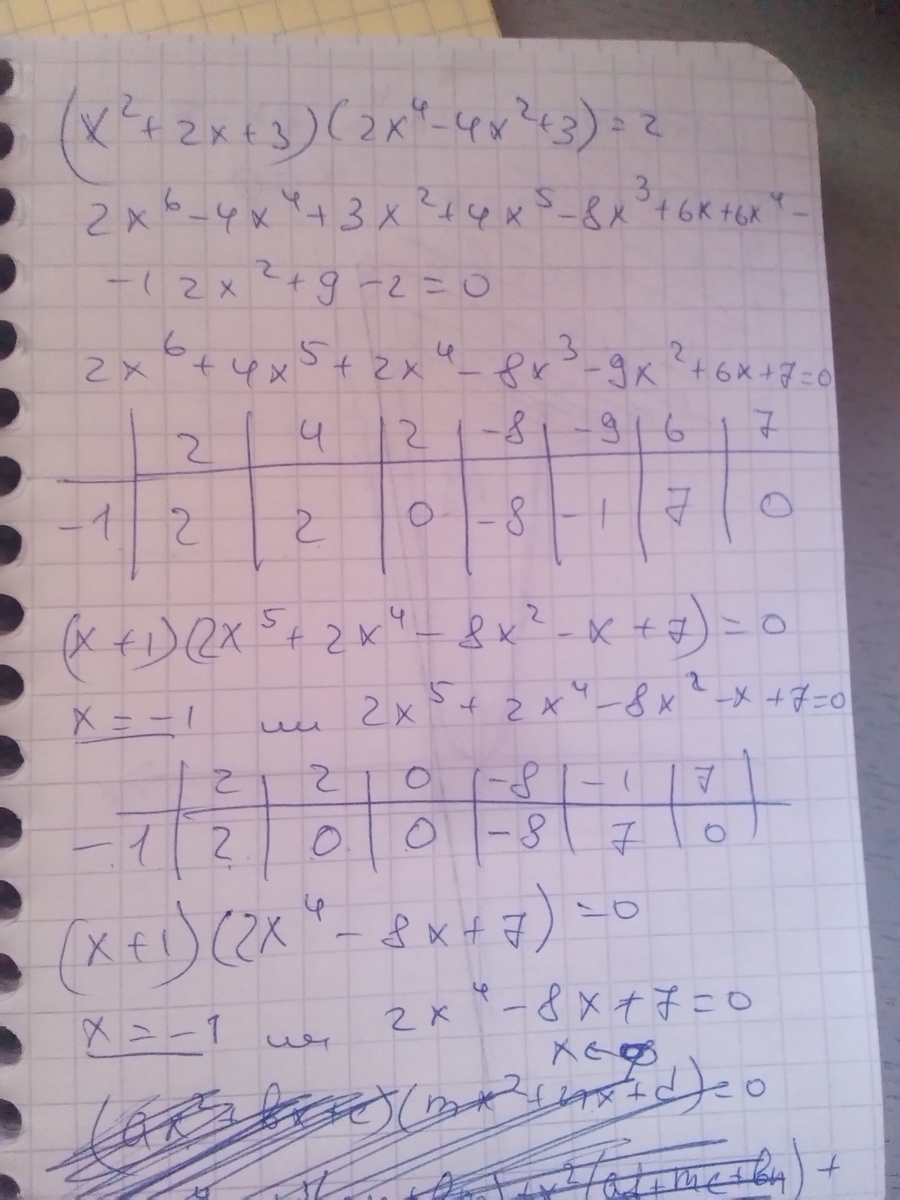 (x² + 2x + 3)(2x⁴ - 4x² + 3) = 2
2x⁶ - 4x⁴ + 3x² + 4x⁵ - 8x³ + 6x + 6x⁴ -
- 12x² + 9 - 2 = 0
2x⁶ + 4x⁵ + 2x⁴ - 8x³ - 9x² + 6x + 7 = 0
2 4 2 -8 -9 6 7
-1 2 2 0 -8 -1 7 0
(x + 1)(2x⁵ + 2x⁴ - 8x² - x + 7) = 0
x = -1 или 2x⁵ + 2x⁴ - 8x² - x + 7 = 0
2 2 0 -8 -1 7
-1 2 0 0 -8 7 0
(x + 1)(2x⁴ - 8x + 7) = 0
x = -1 или 2x⁴ - 8x + 7 = 0
(ax² + bx + c)(mx² + nx + d) = 0